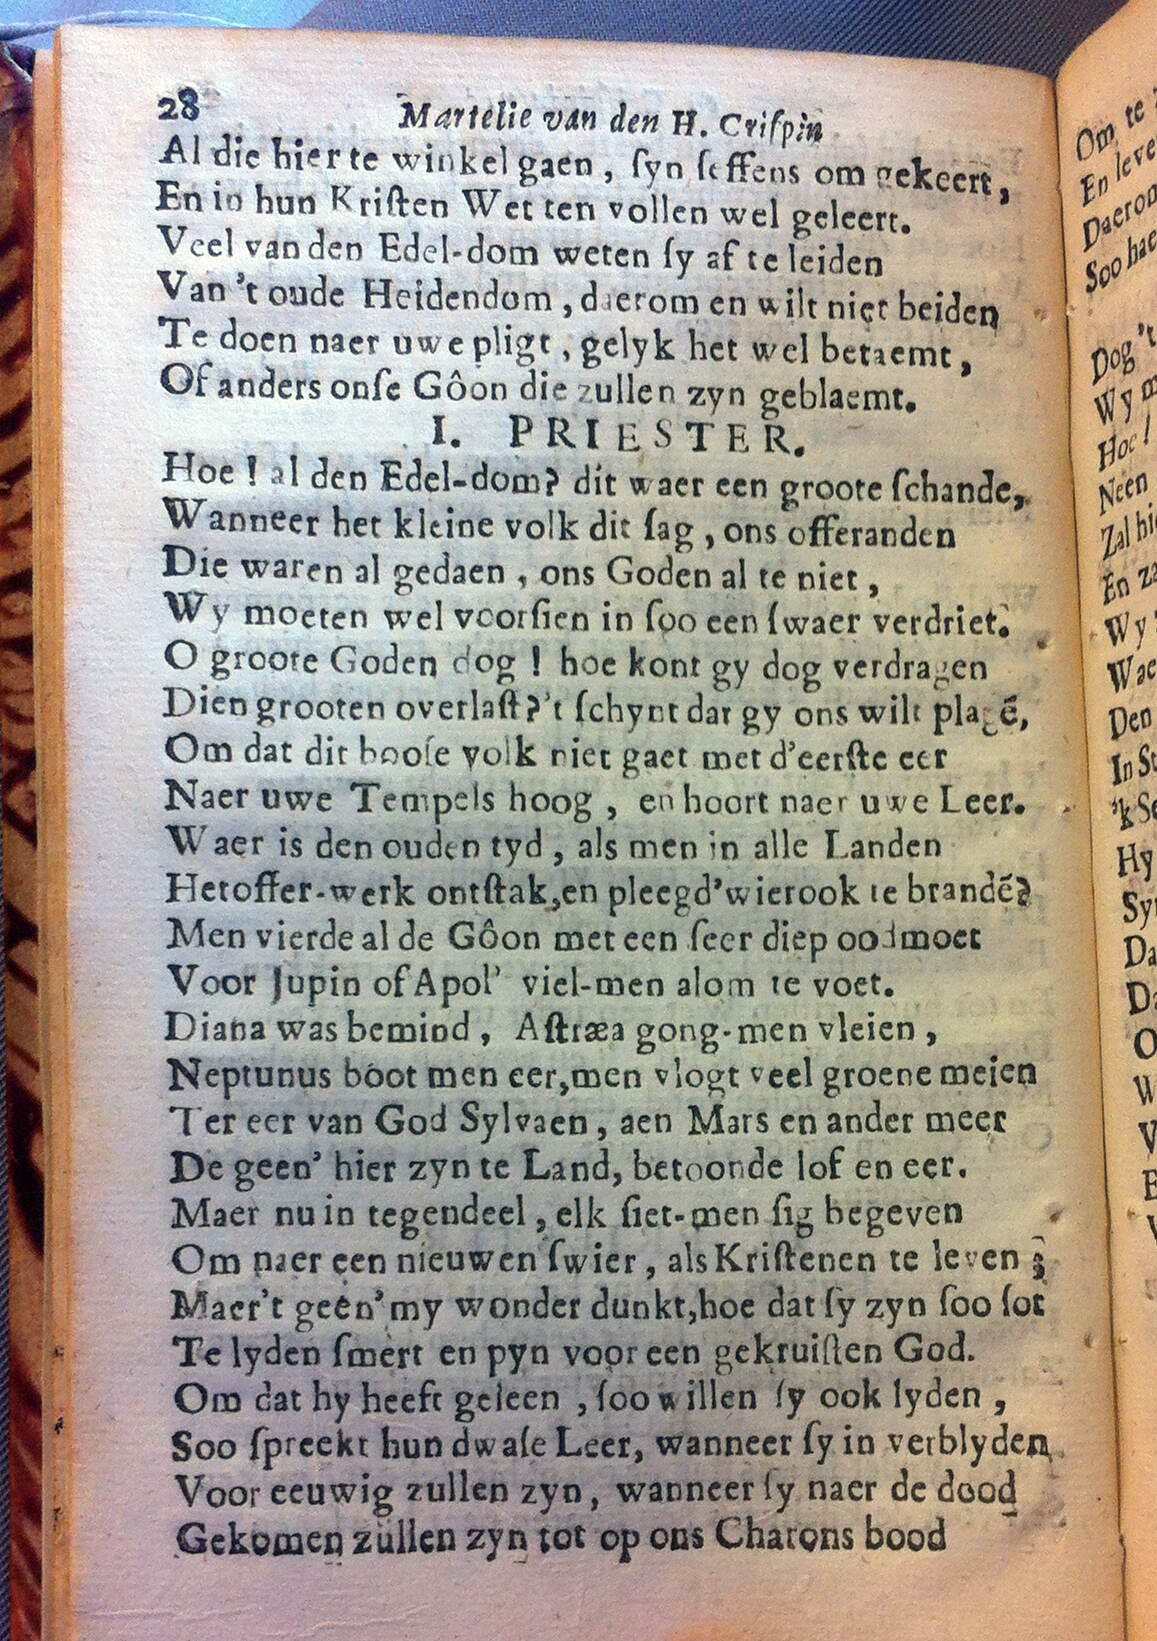 28 Martelie van den H. Criſpin
Al die hier te winkel gaen, ſyn ſeffens om gekeert,
En in hun Kriſten Wet ten vollen wel geleert.
Veel van den Edel-dom weten ſy af te leiden
Van 't oude Heidendom, daerom en wilt niet beiden
Te doen naer uwe pligt, gelyk het wel betaemt,
Of anders onſe Gôon die zullen zyn geblaemt.
I. PRIESTER.
Hoe! al den Edel-dom? dit waer een groote ſchande,
Wanneer het kleine volk dit ſag, ons offeranden
Die waren al gedaen, ons Goden al te niet,
Wy moeten wel voorſien in ſoo een ſwaer verdriet.
O groote Goden dog! hoe kont gy dog verdragen
Dien grooten overlaſt? 't ſchynt dat gy ons wilt plagē,
Om dat dit booſe volk niet gaet met d'eerſte eer
Naer uwe Tempels hoog, en hoort naer uwe Leer.
Waer is den ouden tyd, als men in alle Landen
Het offer-werk ontſtak, en pleegd' wierook te brandē?
Men vierde al de Gôon met een ſeer diep oodmoet
Voor Jupin of Apol' viel-men alom te voet.
Diana was bemind, Aſtræa gong-men vleien,
Neptunus boot men eer, men vlogt veel groene meien
Ter eer van God Sylvaen, aen Mars en ander meer
De geen' hier zyn te Land, betoonde lof en eer.
Maer nu in tegendeel, elk ſiet-men ſig begeven
Om naer een nieuwen ſwier, als Kriſtenen te leven;
Maer 't geen' my wonder dunkt, hoe dat ſy zyn ſoo ſot
Te lyden ſmert en pyn voor een gekruiſten God.
Om dat hy heeft geleen, ſoo willen ſy ook lyden,
Soo ſpreekt hun dwaſe Leer, wanneer ſy in verblyden
Voor eeuwig zullen zyn, wanneer ſy naer de dood
Gekomen zullen zyn tot op ons Charons bood
Om te
En leve
Daerom
Soo hae
Dog 't
Wy m
Hoe!
Neen
Zal hi
En za
Wy
Wae
Den
In St
'k Se
Hy
Syn
Da